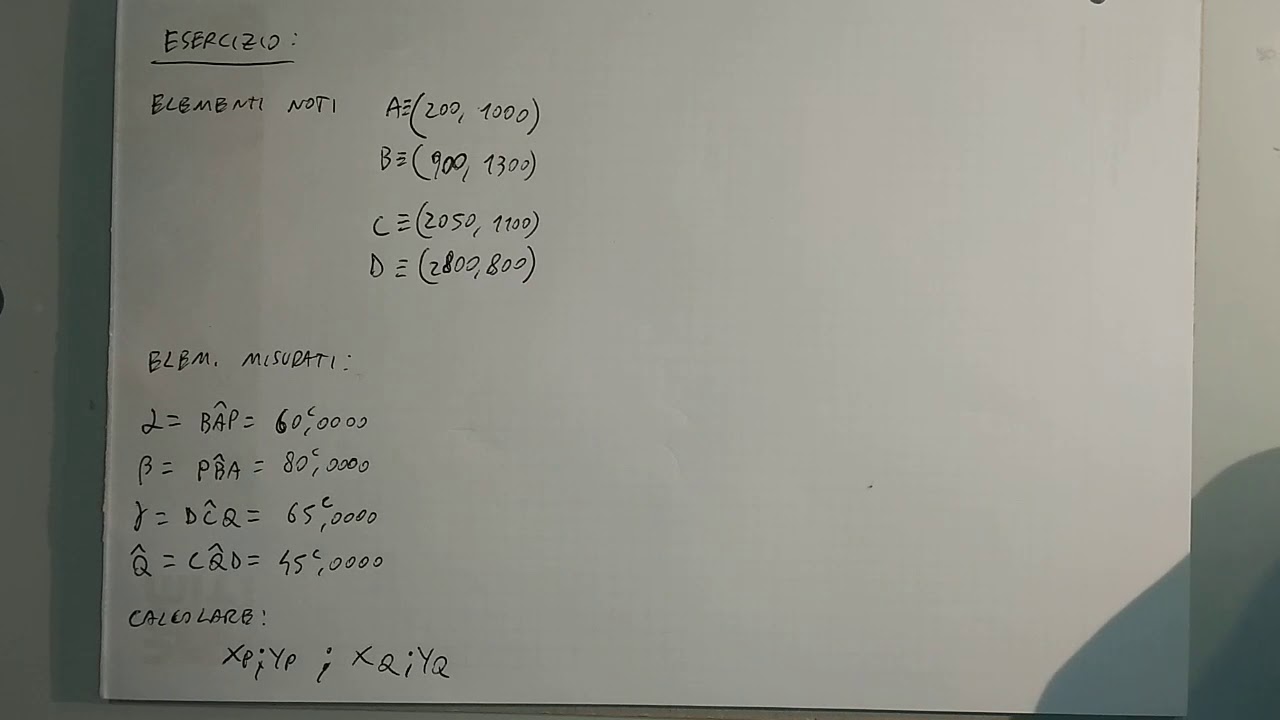 ESERCIZIO:
ELEMENTI NOTI A≡(200, 1000)
B≡(900, 1300)
C≡(2050, 1100)
D≡(2800, 800)
ELEM. MISURATI:
α = BÂP = 60ᶜ,0000
β = PB̂A = 80ᶜ,0000
γ = DĈQ = 65ᶜ,0000
Q̂ = CQ̂D = 45ᶜ,0000
CALCOLARE:
XP;YP ; XQ;YQ